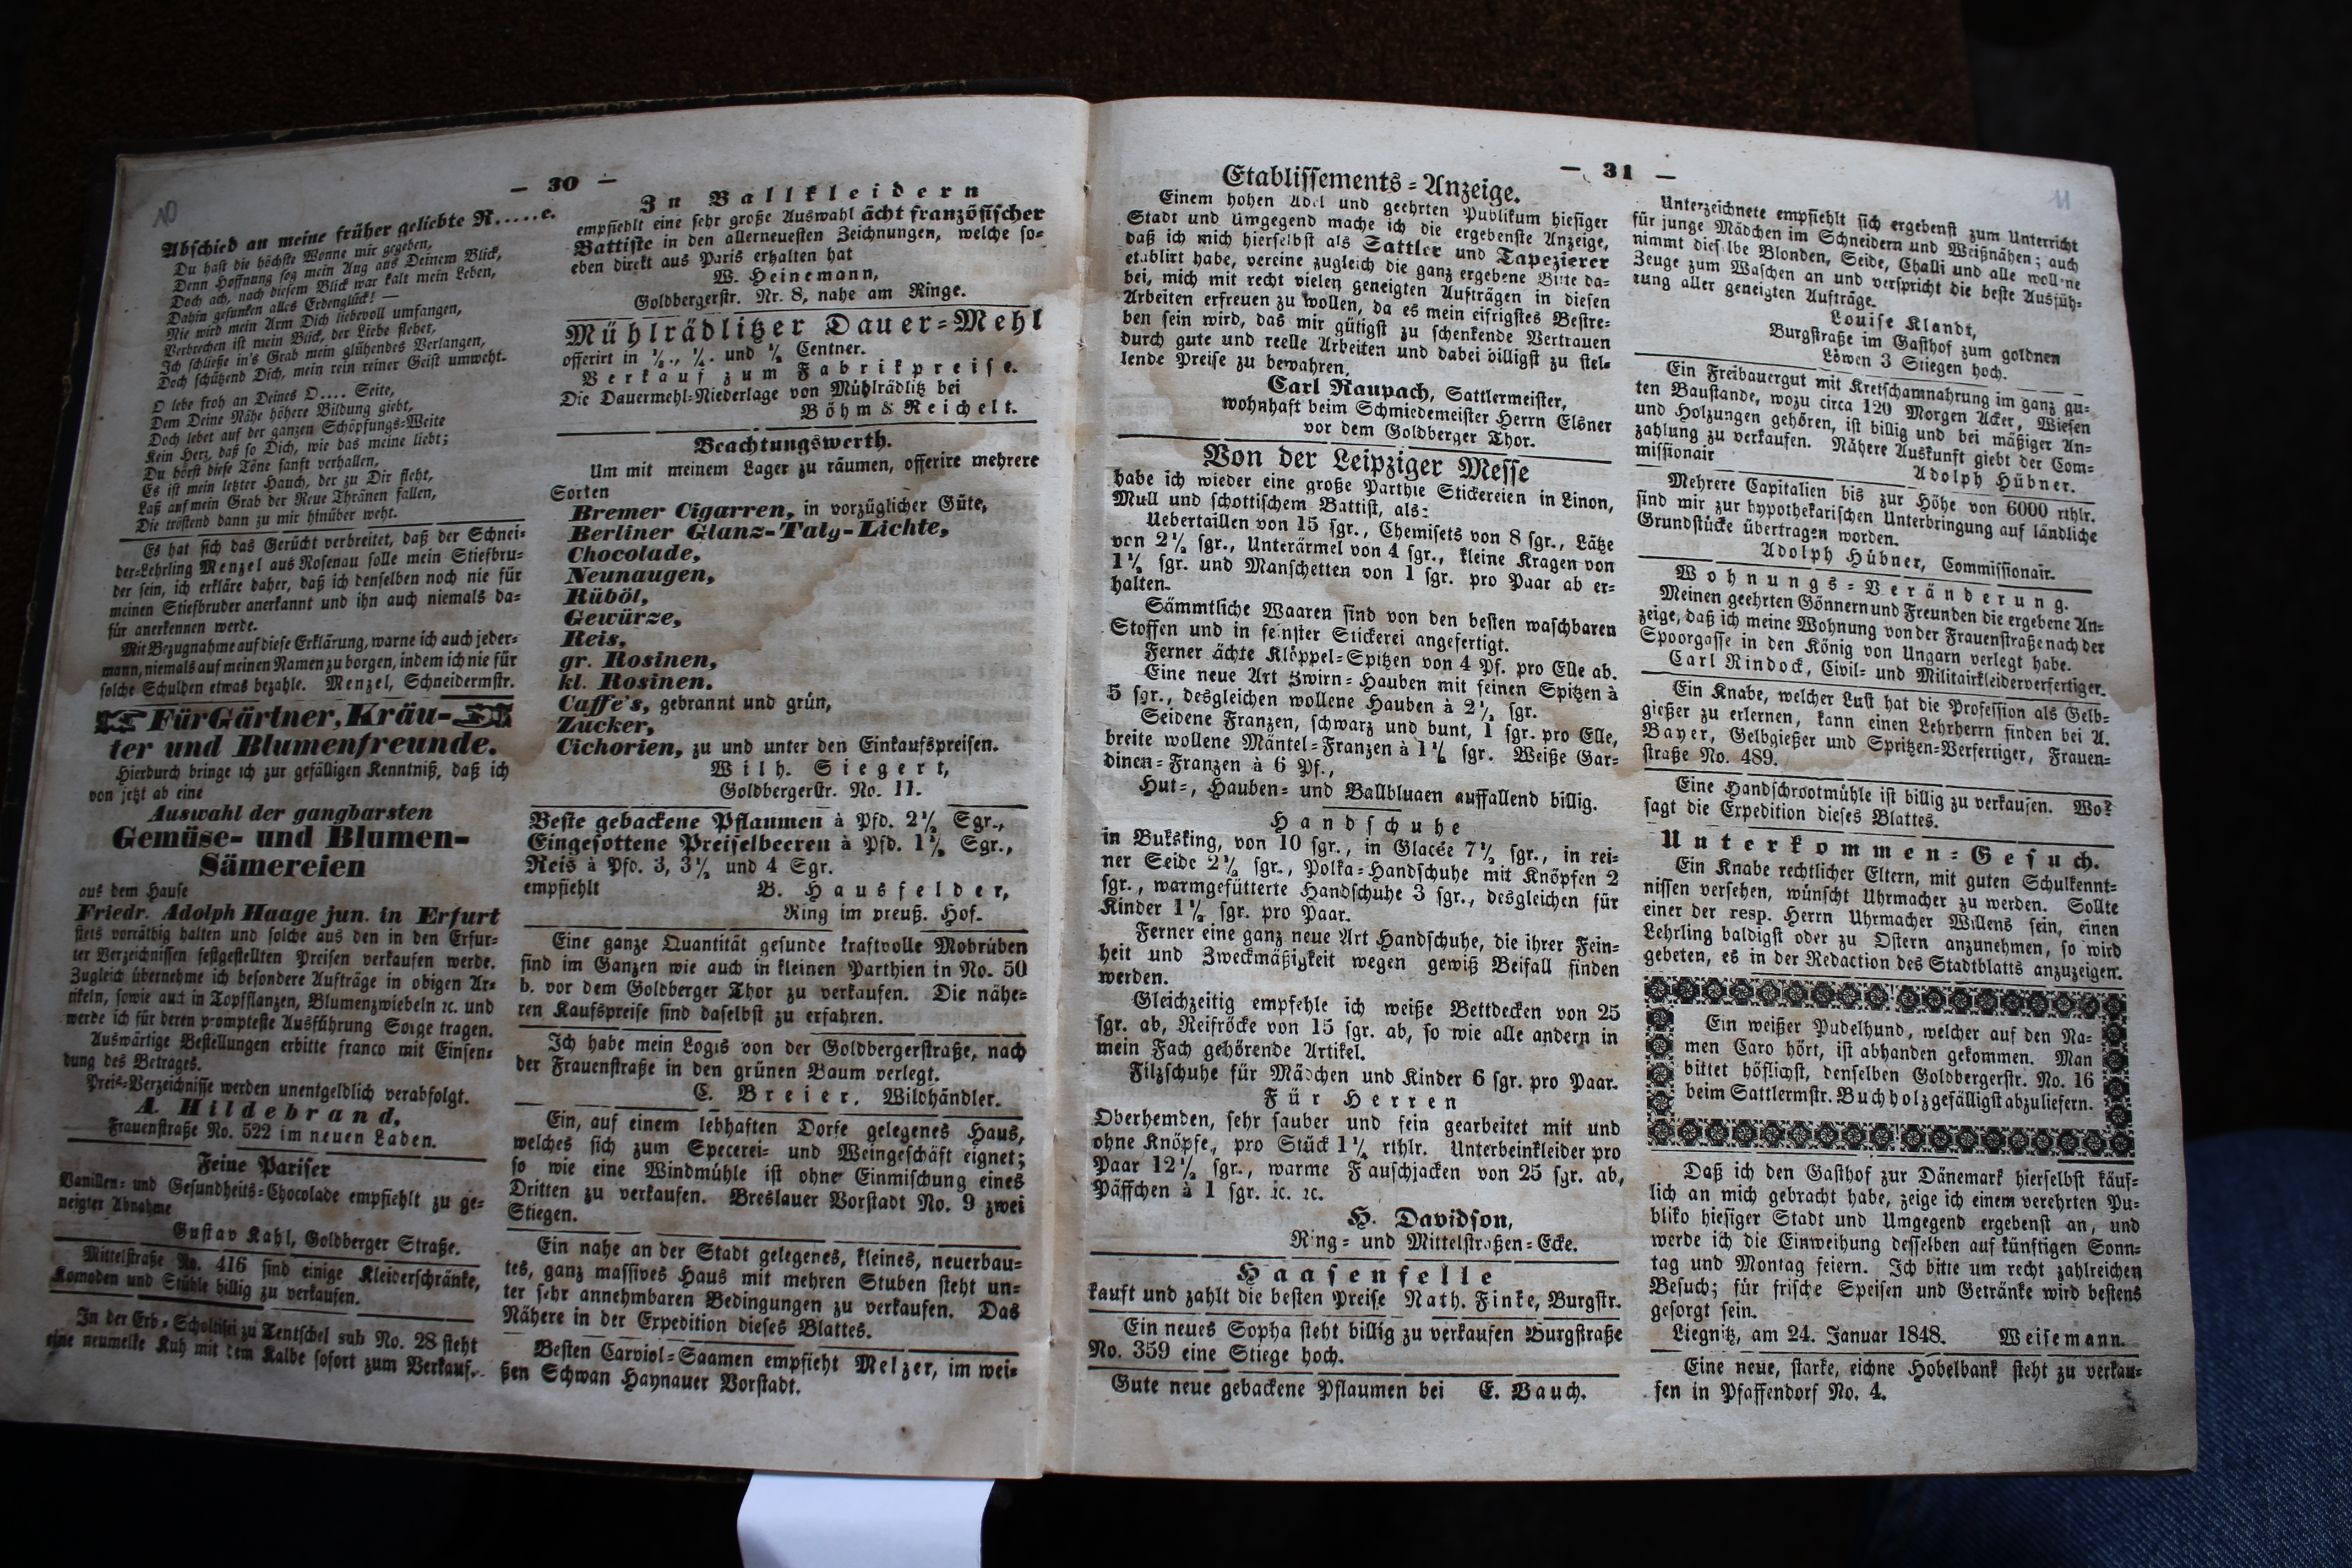 — 30 —
Abschied an meine früher geliebte R.....e.
Du hast die höchste Wonne mir gegeben,
Denn Hoffnung sog mein Aug aus Deinem Blick,
Doch ach, nach diesem Blick war kalt mein Leben,
Dahin gesunken alles Erdenglück! —
Nie wird mein Arm Dich liebevoll umfangen,
Verbrechen ist mein Blick, der Liebe flehet,
Ich schließe in's Grab mein glühendes Verlangen,
Doch schützend Dich, mein rein reiner Geist umweht.
O lebe froh an Deines O.... Seite,
Dem Deine Nähe höhere Bildung giebt,
Doch lebet auf der ganzen Schöpfungs-Weite
Kein Herz, daß so Dich, wie das meine liebt;
Du hörst diese Töne sanft verhallen,
Es ist mein letzter Hauch, der zu Dir fleht,
Laß auf mein Grab der Reue Thränen fallen,
Die tröstend dann zu mir hinüber weht.
Es hat sich das Gerücht verbreitet, daß der Schnei-
der-Lehrling Menzel aus Rosenau solle mein Stiefbru-
der sein, ich erkläre daher, daß ich denselben noch nie für
meinen Stiefbruder anerkannt und ihn auch niemals da-
für anerkennen werde.
Mit Bezugnahme auf diese Erklärung, warne ich auch jeder-
mann, niemals auf meinen Namen zu borgen, indem ich nie für
solche Schulden etwas bezahle. Menzel, Schneidermstr.
Für Gärtner, Kräu-
ter und Blumenfreunde.
Hierdurch bringe ich zur gefälligen Kenntniß, daß ich
von jetzt ab eine
Auswahl der gangbarsten
Gemüse- und Blumen-
Sämereien
aus dem Hause
Friedr. Adolph Haage jun. in Erfurt
stets vorräthig halten und solche aus den in den Erfur-
ter Verzeichnissen festgestellten Preisen verkaufen werde.
Zugleich übernehme ich besondere Aufträge in obigen Ar-
tikeln, sowie auch in Topfpflanzen, Blumenzwiebeln ꝛc. und
werde ich für deren prompteste Ausführung Sorge tragen.
Auswärtige Bestellungen erbitte franco mit Einsen-
dung des Betrages.
Preis-Verzeichnisse werden unentgeldlich verabfolgt.
A. Hildebrand,
Frauenstraße No. 522 im neuen Laden.
Feine Pariser
Vanillen- und Gesundheits-Chocolade empfiehlt zu ge-
neigter Abnahme
Gustav Kahl, Goldberger Straße.
Mittelstraße No. 416 sind einige Kleiderschränke,
Komoden und Stühle billig zu verkaufen.
In der Erb-Scholtisei zu Tentschel sub No. 28 steht
eine neumelke Kuh mit dem Kalbe sofort zum Verkauf.
In Ballkleidern
empfiehlt eine sehr große Auswahl ächt französischer
Battiste in den allerneuesten Zeichnungen, welche so-
eben direkt aus Paris erhalten hat
W. Heinemann,
Goldbergerstr. Nr. 8, nahe am Ringe.
Mühlrädlitzer Dauer-Mehl
offerirt in ½., ¼. und ⅛ Centner.
Verkauf zum Fabrikpreise.
Die Dauermehl-Niederlage von Mühlrädlitz bei
Böhm & Reichelt.
Beachtungswerth.
Um mit meinem Lager zu räumen, offerire mehrere
Sorten
Bremer Cigarren, in vorzüglicher Güte,
Berliner Glanz-Talg-Lichte,
Chocolade,
Neunaugen,
Rüböl,
Gewürze,
Reis,
gr. Rosinen,
kl. Rosinen.
Caffe's, gebrannt und grün,
Zucker,
Cichorien, zu und unter den Einkaufspreisen.
Wilh. Siegert,
Goldbergerstr. No. 11.
Beste gebackene Pflaumen à Pfd. 2½ Sgr.,
Eingesottene Preiselbeeren à Pfd. 1½ Sgr.,
Reis à Pfd. 3, 3½ und 4 Sgr.
empfiehlt B. Hausfelder,
Ring im preuß. Hof.
Eine ganze Quantität gesunde kraftvolle Mohrüben
sind im Ganzen wie auch in kleinen Parthien in No. 50
b. vor dem Goldberger Thor zu verkaufen. Die nähe-
ren Kaufspreise sind daselbst zu erfahren.
Ich habe mein Logis von der Goldbergerstraße, nach
der Frauenstraße in den grünen Baum verlegt.
C. Breier, Wildhändler.
Ein, auf einem lebhaften Dorfe gelegenes Haus,
welches sich zum Specerei- und Weingeschäft eignet;
so wie eine Windmühle ist ohne Einmischung eines
Dritten zu verkaufen. Breslauer Vorstadt No. 9 zwei
Stiegen.
Ein nahe an der Stadt gelegenes, kleines, neuerbau-
tes, ganz massives Haus mit mehren Stuben steht un-
ter sehr annehmbaren Bedingungen zu verkaufen. Das
Nähere in der Expedition dieses Blattes.
Besten Carviol-Saamen empfieht Melzer, im wei-
ßen Schwan Haynauer Vorstadt.
— 31 —
11
Etablissements-Anzeige.
Einem hohen Adel und geehrten Publikum hiesiger
Stadt und Umgegend mache ich die ergebenste Anzeige,
daß ich mich hierselbst als Sattler und Tapezierer
etablirt habe, vereine zugleich die ganz ergebene Bitte da-
bei, mich mit recht vielen geneigten Aufträgen in diesen
Arbeiten erfreuen zu wollen, da es mein eifrigstes Bestre-
ben sein wird, das mir gütigst zu schenkende Vertrauen
durch gute und reelle Arbeiten und dabei billigst zu stel-
lende Preise zu bewahren.
Carl Raupach, Sattlermeister,
wohnhaft beim Schmiedemeister Herrn Elsner
vor dem Goldberger Thor.
Von der Leipziger Messe
habe ich wieder eine große Parthie Stickereien in Linon,
Mull und schottischem Battist, als:
Uebertaillen von 15 sgr., Chemisets von 8 sgr., Lätze
von 2½ sgr., Unterärmel von 4 sgr., kleine Kragen von
1½ sgr. und Manschetten von 1 sgr. pro Paar ab er-
halten.
Sämmtliche Waaren sind von den besten waschbaren
Stoffen und in feinster Stickerei angefertigt.
Ferner ächte Klöppel-Spitzen von 4 Pf. pro Elle ab.
Eine neue Art Zwirn-Hauben mit feinen Spitzen à
5 sgr., desgleichen wollene Hauben à 2½ sgr.
Seidene Franzen, schwarz und bunt, 1 sgr. pro Elle,
breite wollene Mäntel-Franzen à 1 sgr. Weiße Gar-
dinen-Franzen à 6 Pf.,
Hut-, Hauben- und Ballblumen auffallend billig.
Handschuhe
in Buksking, von 10 sgr., in Glacée 7½ sgr., in rei-
ner Seide 2½ sgr., Polka-Handschuhe mit Knöpfen 2
sgr., warmgefütterte Handschuhe 3 sgr., desgleichen für
Kinder 1½ sgr. pro Paar.
Ferner eine ganz neue Art Handschuhe, die ihrer Fein-
heit und Zweckmäßigkeit wegen gewiß Beifall finden
werden.
Gleichzeitig empfehle ich weiße Bettdecken von 25
sgr. ab, Reifröcke von 15 sgr. ab, so wie alle andern in
mein Fach gehörende Artikel.
Filzschuhe für Mädchen und Kinder 6 sgr. pro Paar.
Für Herren
Oberhemden, sehr sauber und fein gearbeitet mit und
ohne Knöpfe, pro Stück 1 rthlr. Unterbeinkleider pro
Paar 12½ sgr., warme Fauschjacken von 25 sgr. ab,
Päffchen à 1 sgr. ꝛc. ꝛc.
H. Davidson,
Ring- und Mittelstraßen-Ecke.
Haasenfelle
kauft und zahlt die besten Preise Nath. Finke, Burgstr.
Ein neues Sopha steht billig zu verkaufen Burgstraße
No. 359 eine Stiege hoch.
Gute neue gebackene Pflaumen bei E. Bauch.
Unterzeichnete empfiehlt sich ergebenst zum Unterricht
für junge Mädchen im Schneidern und Weißnähen; auch
nimmt dieselbe Blonden, Seide, Challi und alle wollene
Zeuge zum Waschen an und verspricht die beste Ausfüh-
rung aller geneigten Aufträge.
Louise Klandt,
Burgstraße im Gasthof zum goldnen
Löwen 3 Stiegen hoch.
Ein Freibauergut mit Kretschamnahrung im ganz gu-
ten Baustande, wozu circa 120 Morgen Acker, Wiesen
und Holzungen gehören, ist billig und bei mäßiger An-
zahlung zu verkaufen. Nähere Auskunft giebt der Com-
missionair Adolph Hübner.
Mehrere Capitalien bis zur Höhe von 6000 rthlr.
sind mir zur hypothekarischen Unterbringung auf ländliche
Grundstücke übertragen worden.
Adolph Hübner, Commissionair.
Wohnungs-Veränderung.
Meinen geehrten Gönnern und Freunden die ergebene An-
zeige, daß ich meine Wohnung von der Frauenstraße nach der
Spoorgasse in den König von Ungarn verlegt habe.
Carl Rindock, Civil- und Militairkleiderverfertiger.
Ein Knabe, welcher Lust hat die Profession als Gelb-
gießer zu erlernen, kann einen Lehrherrn finden bei A.
Bayer, Gelbgießer und Spritzen-Verfertiger, Frauen-
straße No. 489.
Eine Handschrootmühle ist billig zu verkaufen. Wo?
sagt die Expedition dieses Blattes.
Unterkommen-Gesuch.
Ein Knabe rechtlicher Eltern, mit guten Schulkennt-
nissen versehen, wünscht Uhrmacher zu werden. Sollte
einer der resp. Herrn Uhrmacher Willens sein, einen
Lehrling baldigst oder zu Ostern anzunehmen, so wird
gebeten, es in der Redaction des Stadtblatts anzuzeigen.
Ein weißer Pudelhund, welcher auf den Na-
men Caro hört, ist abhanden gekommen. Man
bittet höflichst, denselben Goldbergerstr. No. 16
beim Sattlermstr. Buchholz gefälligst abzuliefern.
Daß ich den Gasthof zur Dänemark hierselbst käuf-
lich an mich gebracht habe, zeige ich einem verehrten Pu-
bliko hiesiger Stadt und Umgegend ergebenst an, und
werde ich die Einweihung desselben auf künftigen Sonn-
tag und Montag feiern. Ich bitte um recht zahlreichen
Besuch; für frische Speisen und Getränke wird bestens
gesorgt sein.
Liegnitz, am 24. Januar 1848. Weisemann.
Eine neue, starke, eichne Hobelbank steht zu verkau-
fen in Pfaffendorf No. 4.